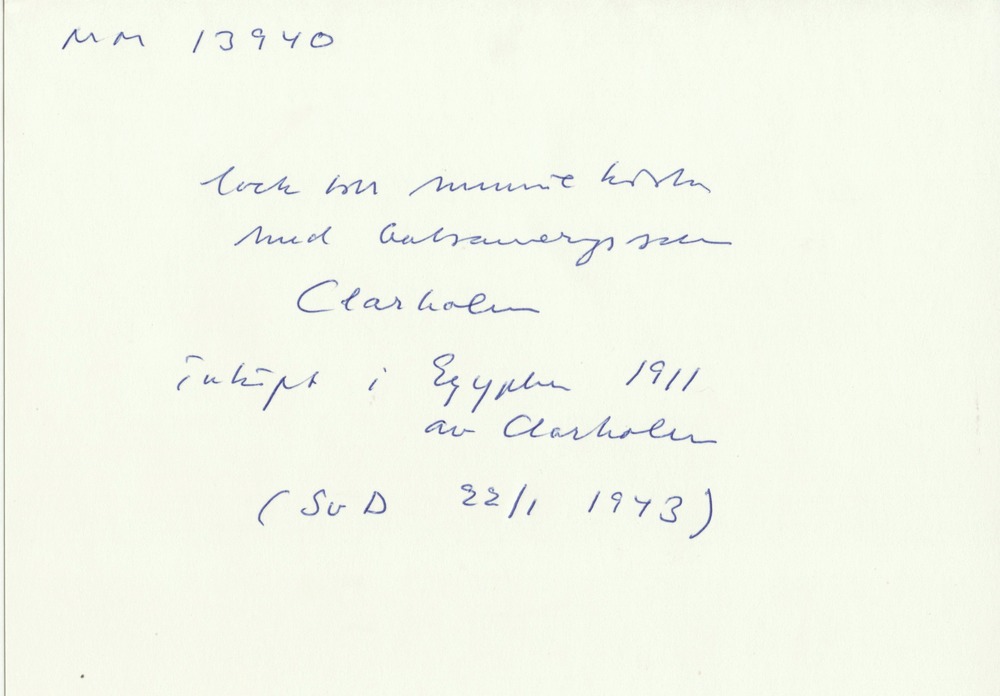 MM 13940
lock till mumiekista
med balsameringsscen
Clarholm
inköpt i Egypten 1911
av Clarholm
(SvD 22/1 1943)